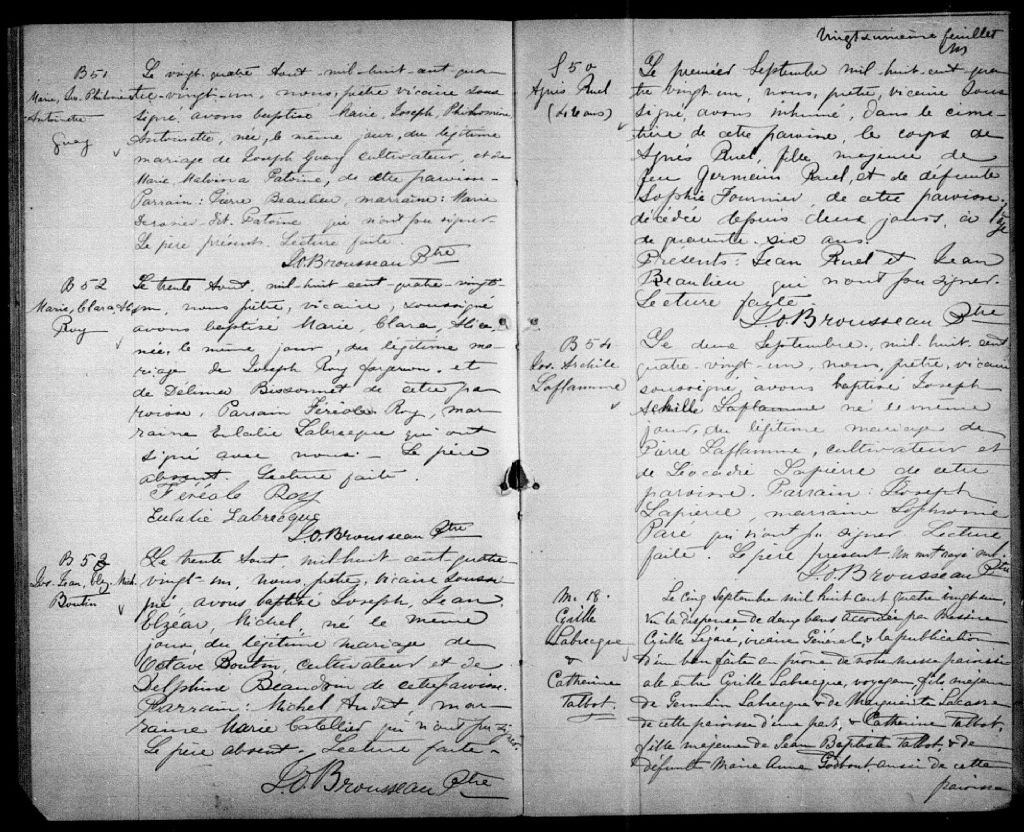 B 51
Marie, Jos. Philomène
Antoinette
Guay
Le vingt-quatre Août mil-huit-cent qua-
tre-vingt-un, nous, prêtre vicaire sous
signé, avons baptisé Marie, Joseph, Philomène
Antoinette, née, le même jour, du légitime
mariage de Joseph Guay cultivateur, et de
Marie Malvina Patoine, de cette paroisse
Parrain: Pierre Beaulieu, marraine: Marie
dit Patoine qui n'ont pu signer
Le père présent. Lecture faite.
J.O. Brousseau Ptre
B 52
Marie, Clara, Alice
Roy
Le trente Août, mil-huit cent quatre-vingt-
un, nous, prêtre, vicaire, soussigné
avons baptisé Marie, Clara, Alice,
née, le même jour, du légitime ma-
riage de Joseph Roy forgeron et
de Délima Bissonnet de cette pa
roisse. Parrain Féréole Roy, mar-
raine Eulalie Labrecque qui ont
signé avec nous. Le père
absent. Lecture faite.
Féréole Roy
Eulalie Labrecque
J.O. Brousseau Ptre
B 53
Jos. Jean, Elz. Mich.
Boutin
Le trente Août, mil huit cent quatre-
vingt-un, nous, prêtre, vicaire soussi
gné, avons baptisé Joseph, Jean
Elzéar, Michel, né le même
jour, du légitime mariage de
Octave Boutin, cultivateur et de
Delphine Beaudoin de cette paroisse.
Parrain: Michel Audet, mar-
raine Marie Catellier qui n'ont pu signer
Le père absent. Lecture faite.
J.O. Brousseau Ptre
Vingt & unième feuillet
S 50
Agnès Ruel
(46 ans)
Le premier Septembre mil-huit-cent qua
tre vingt-un, nous, prêtre, vicaire sous
signé, avons inhumé, dans le cime-
tière de cette paroisse le corps de
Agnès Ruel, fille majeure de
feu Germain Ruel, et de défunte
Sophie Fournier, de cette paroisse,
décédée depuis deux jours, à l'âge
de quarante-six ans.
Présents: Jean Ruel et Jean
Beaulieu qui n'ont pu signer.
Lecture faite.
J.O. Brousseau Ptre
B 54
Jos. Achille
Laflamme
Le deux Septembre, mil-huit cent
quatre-vingt-un, nous, prêtre, vicaire
soussigné, avons baptisé Joseph
Achille Laflamme né le même
jour, du légitime mariage de
Pierre Laflamme, cultivateur et
de Léocadie Lapierre de cette
paroisse. Parrain: Joseph
Lapierre, marraine Sophronie
Paré qui n'ont pu signer Lecture
faite. Le père présent Un mot rayé nul.
J.O. Brousseau Ptre
M. 18.
Cyrille
Labrecque
&
Catherine
Talbot.
Le cinq Septembre mil huit cent quatre vingt un,
Vu la dispense de deux bans accordée par Messire
Cyrille Légaré, vicaire Général, & la publication
d'un ban faite au prône de notre messe paroissi
ale entre Cyrille Labrecque, voyageur fils majeur
de Germain Labrecque & de Marguerite Lacasse
de cette paroisse d'une part, & Catherine Talbot,
fille majeure de Jean Baptiste Talbot, & de
défunte Marie Anne Godbout, aussi de cette
paroisse